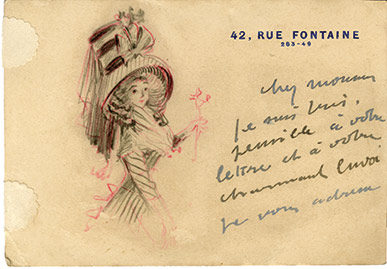 42, RUE FONTAINE
283-49
cher monsieur
je suis très,
sensible à votre
lettre et à votre
charmant envoi
je vous adresse